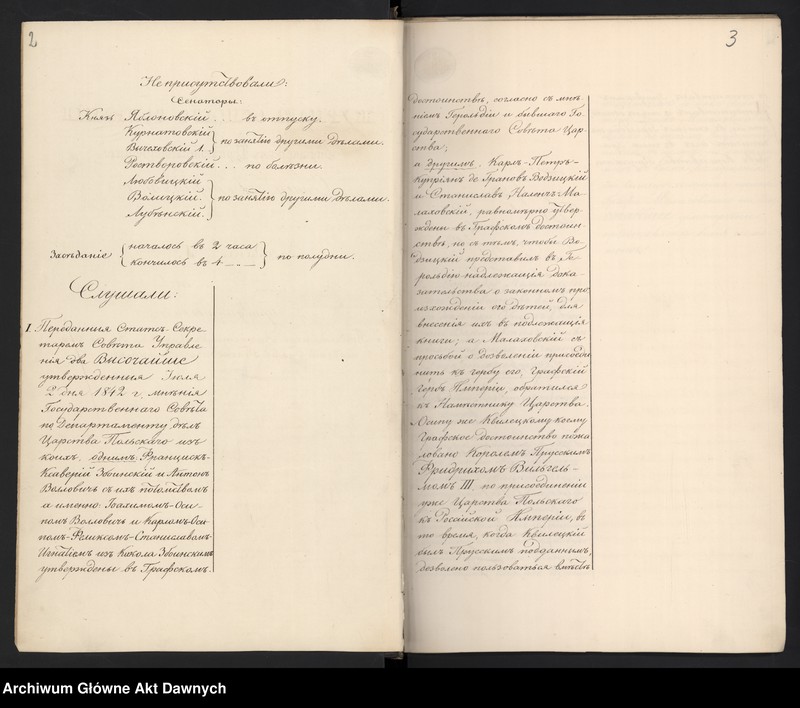 2
Не присутствовали:
Сенаторы:
Князь Яблоновскій . . . въ отпуску.
Курнатовскій
Вычеховскій 1. по занятію другими дѣлами.
Ростворовскій . . . по болѣзни.
Любовицкій
Волицкій. по занятію другими дѣлами.
Лубѣнскій.
Засѣданіе началось въ 2 часа
кончилось въ 4 — „ — по полудни.
Слушали:
I. Переданныя Статсъ-Секре-
таремъ Совѣта Управле
нія два Высочайше
утвержденныя Іюля
2 дня 1842 г. мнѣнія
Государственнаго Совѣта
по Департаменту дѣлъ
Царства Польскаго изъ
коихъ, однимъ, Францискъ-
Ксаверій Збоинскій и Антонъ
Волловичъ съ ихъ потомствомъ
а именно: Іоахимомъ-Оси-
помъ Волловичъ и Карломъ-Оси
помъ-Феликсомъ-Станиславомъ-
Игнатіомъ изъ Кикола Збоинскимъ
утверждены въ Графскомъ
3
достоинствѣ, согласно съ мнѣ
ніемъ Герольдіи и бывшаго Го
сударственнаго Совѣта Цар-
ства;
а другимъ, Карлъ-Петръ-
Купріянъ де Грановъ Водзицкій
и Станиславъ Наленчъ-Ма-
лаховскій, равномѣрно утвер-
ждены въ Графскомъ достоин-
ствѣ, но съ тѣмъ, чтобы Во-
дзицкій представилъ въ Ге-
рольдію надлежащія дока-
зательства о законномъ про
изхожденіи его дѣтей, для
внесенія ихъ въ подлежащія
книги; а Малаховскій съ
просьбой о дозволеніи присоеди
нить къ гербу его, Графскій
гербъ Имперіи, обратился
къ Намѣстнику Царства.
Осипу же Квилецкому коему
Графское достоинство пожа
ловано Королемъ Прусскимъ
Фридрихомъ Вильгель-
момъ III по присоединеніи
уже Царства Польскаго
къ Россійской Имперіи, въ
то время, когда Квилецкій
былъ Прусскимъ подданнымъ,
дозволено пользоваться вмѣстѣ
Archiwum Główne Akt Dawnych